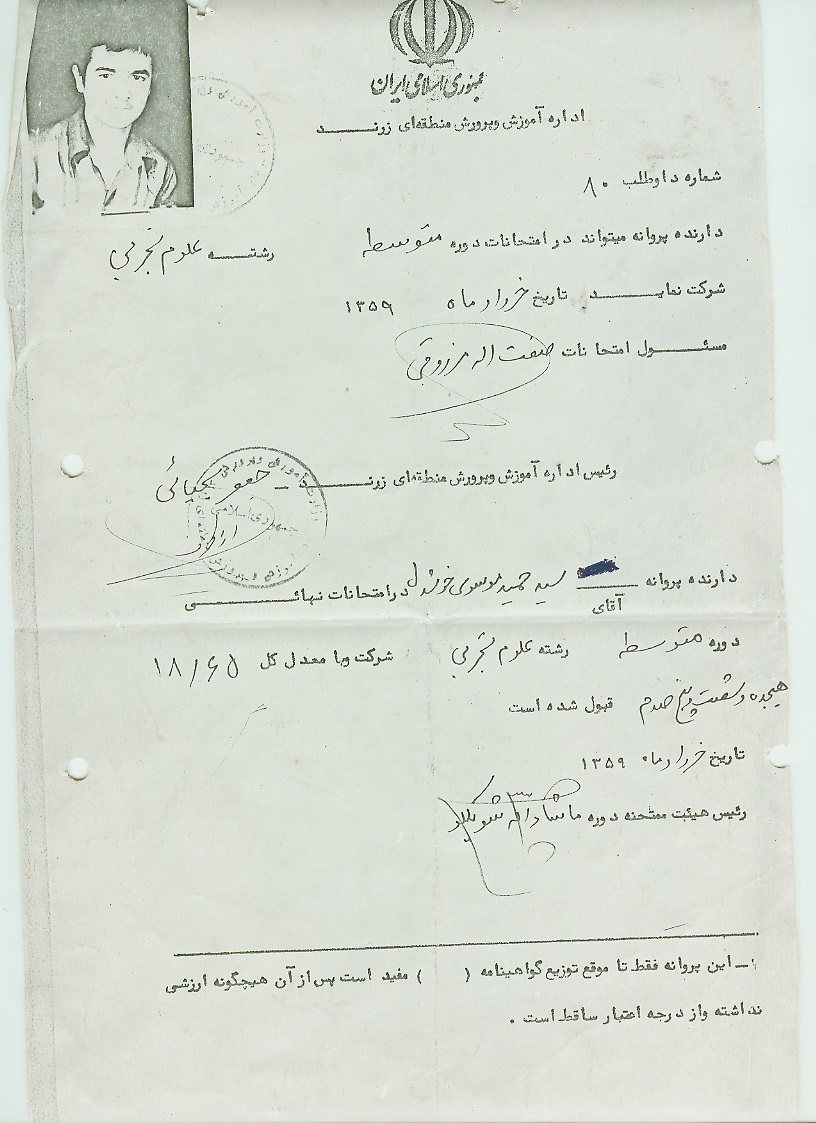 جمهوری اسلامی ایران
اداره آموزش وپرورش منطقه‌ای زرند
شماره داوطلب ۸۰
دارنده پروانه میتواند در امتحانات دوره متوسطه رشته علوم تجربی
شرکت نماید تاریخ خرداد ماه ۱۳۵۹
مسئول امتحانات صفت اله مرزوقی
رئیس اداره آموزش وپرورش منطقه‌ای زرند جعفر یحیائی
دارنده پروانه سید حمید موسوی در امتحانات نهائی
آقای
دوره متوسطه رشته علوم تجربی شرکت وبا معدل کل ۱۸/۶۵
هیجده و شصت و پنج صدم قبول شده است
تاریخ خرداد ماه ۱۳۵۹
رئیس هیئت ممتحنه دوره ماشاءاله
:ـ این پروانه فقط تا موقع توزیع گواهینامه ( ) مفید است پس از آن هیچگونه ارزشی
نداشته واز درجه اعتبار ساقط است .